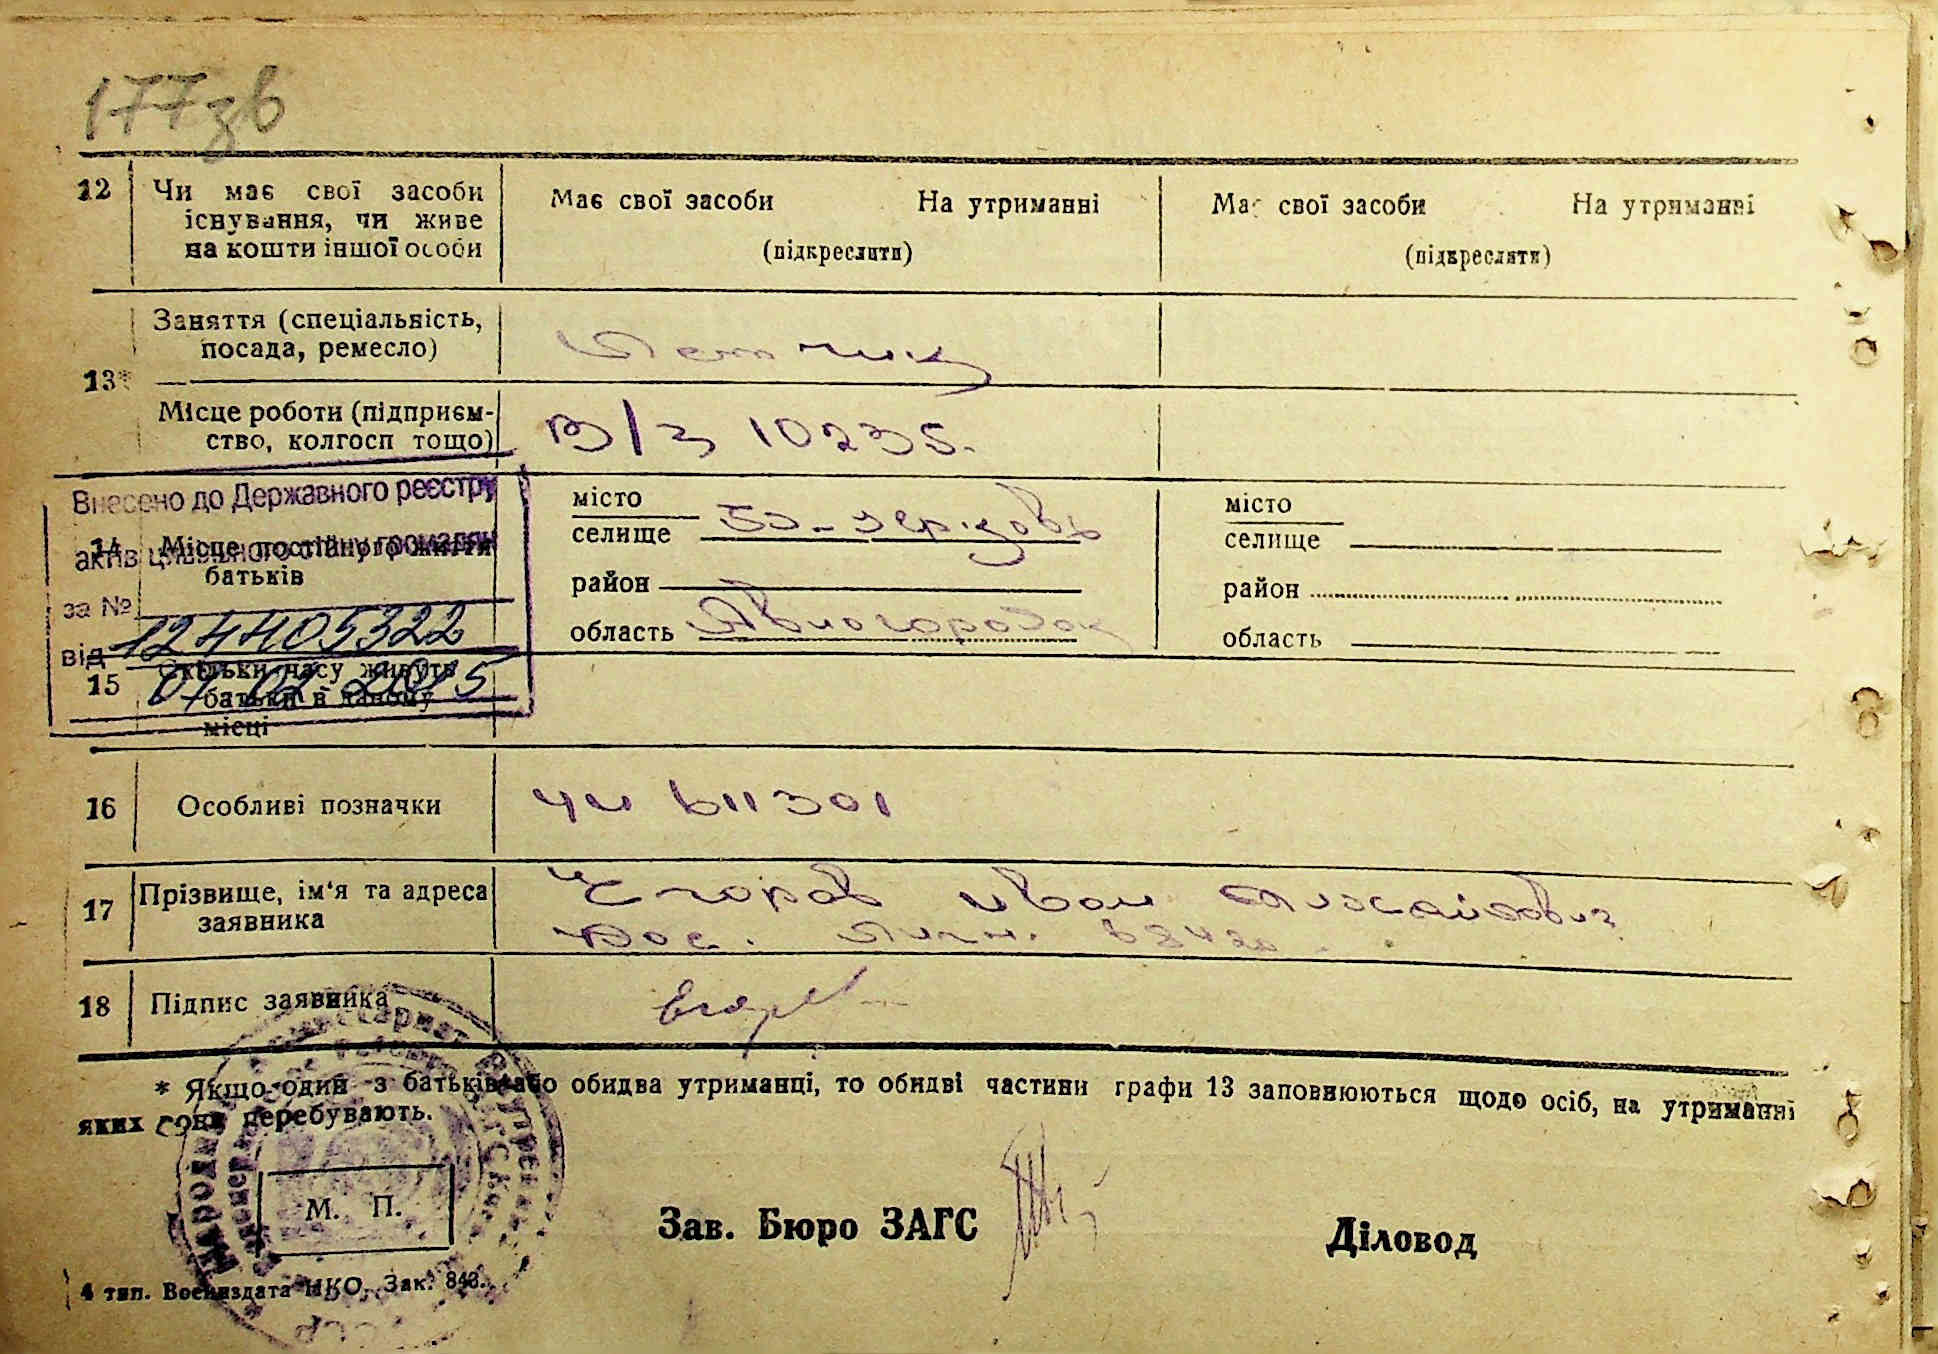 177зв
12 Чи має свої засоби існування, чи живе на кошти іншої особи
Має свої засоби На утриманні
(підкреслити)
Має свої засоби На утриманні
(підкреслити)
13* Заняття (спеціальність, посада, ремесло)
Летчик
Місце роботи (підприємство, колгосп тощо)
В/з 10235.
Внесено до Державного реєстру
актів цивільного стану громадян
за № 124405322
від 07.02.2015
14 Місце постійного життя батьків
місто
селище
район
область Авиогородок
місто
селище
район
область
15 Скільки часу живуть батьки в даному місці
16 Особливі позначки
17 Прізвище, ім'я та адреса заявника
Егоров Иван
18 Підпис заявника
* Якщо один з батьків або обидва утриманці, то обидві частини графи 13 заповнюються щодо осіб, на утриманні
яких вони перебувають.
М. П.
Зав. Бюро ЗАГС
Діловод
4 тип. Воениздата НКО, Зак. 843.